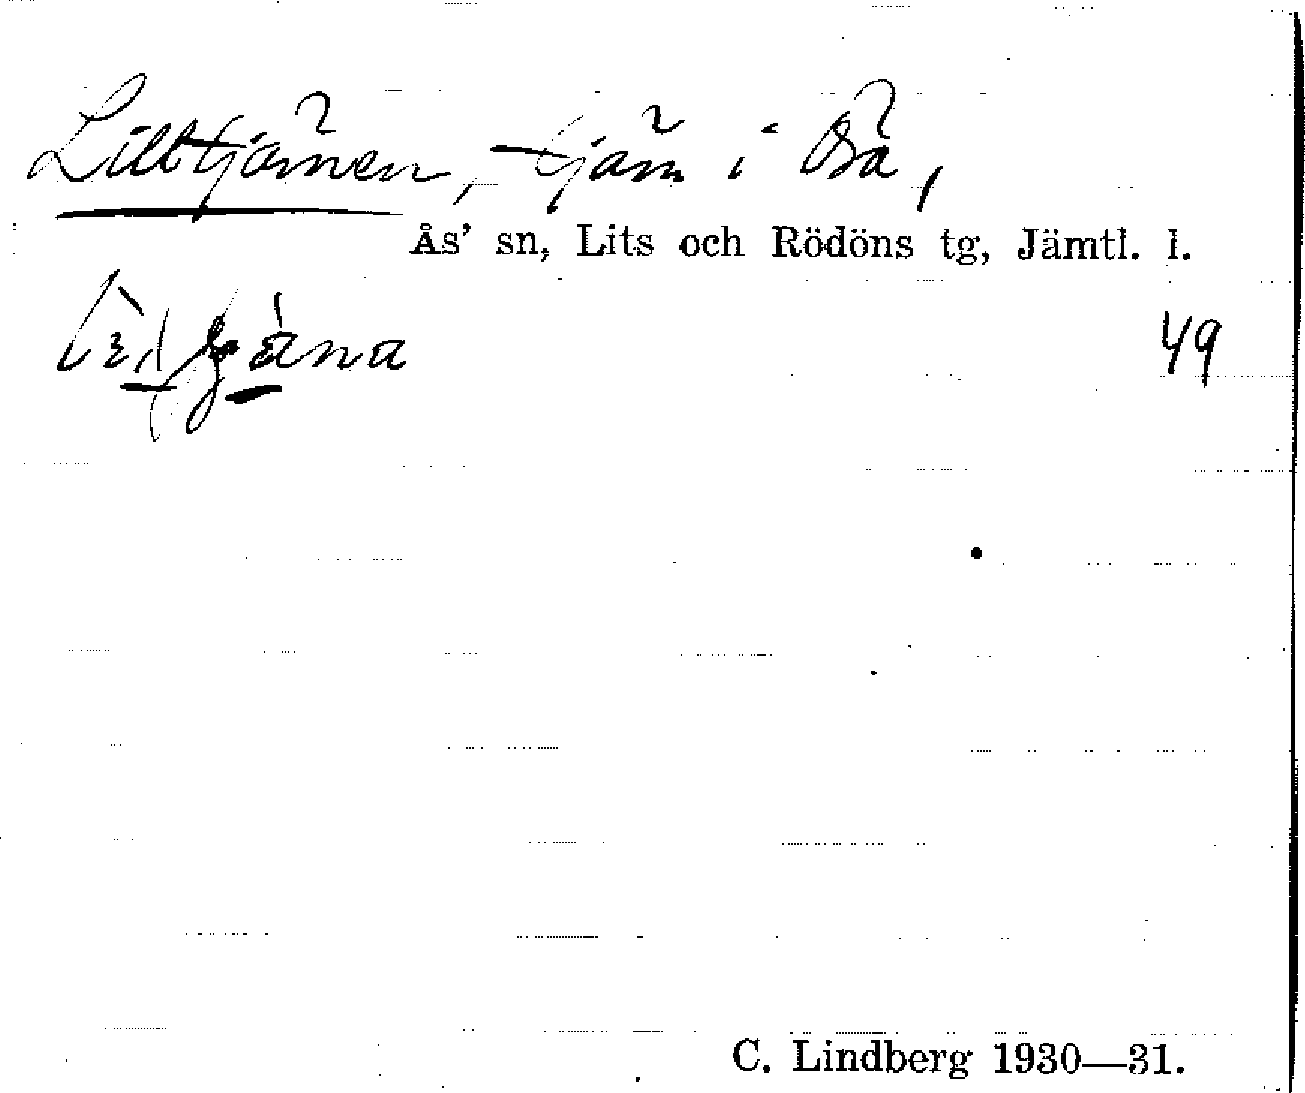 Lilltjärnen, tjärn i Bå,
Ås' sn, Lits och Rödöns tg, Jämtl. l.
49
C. Lindberg 1930—31.